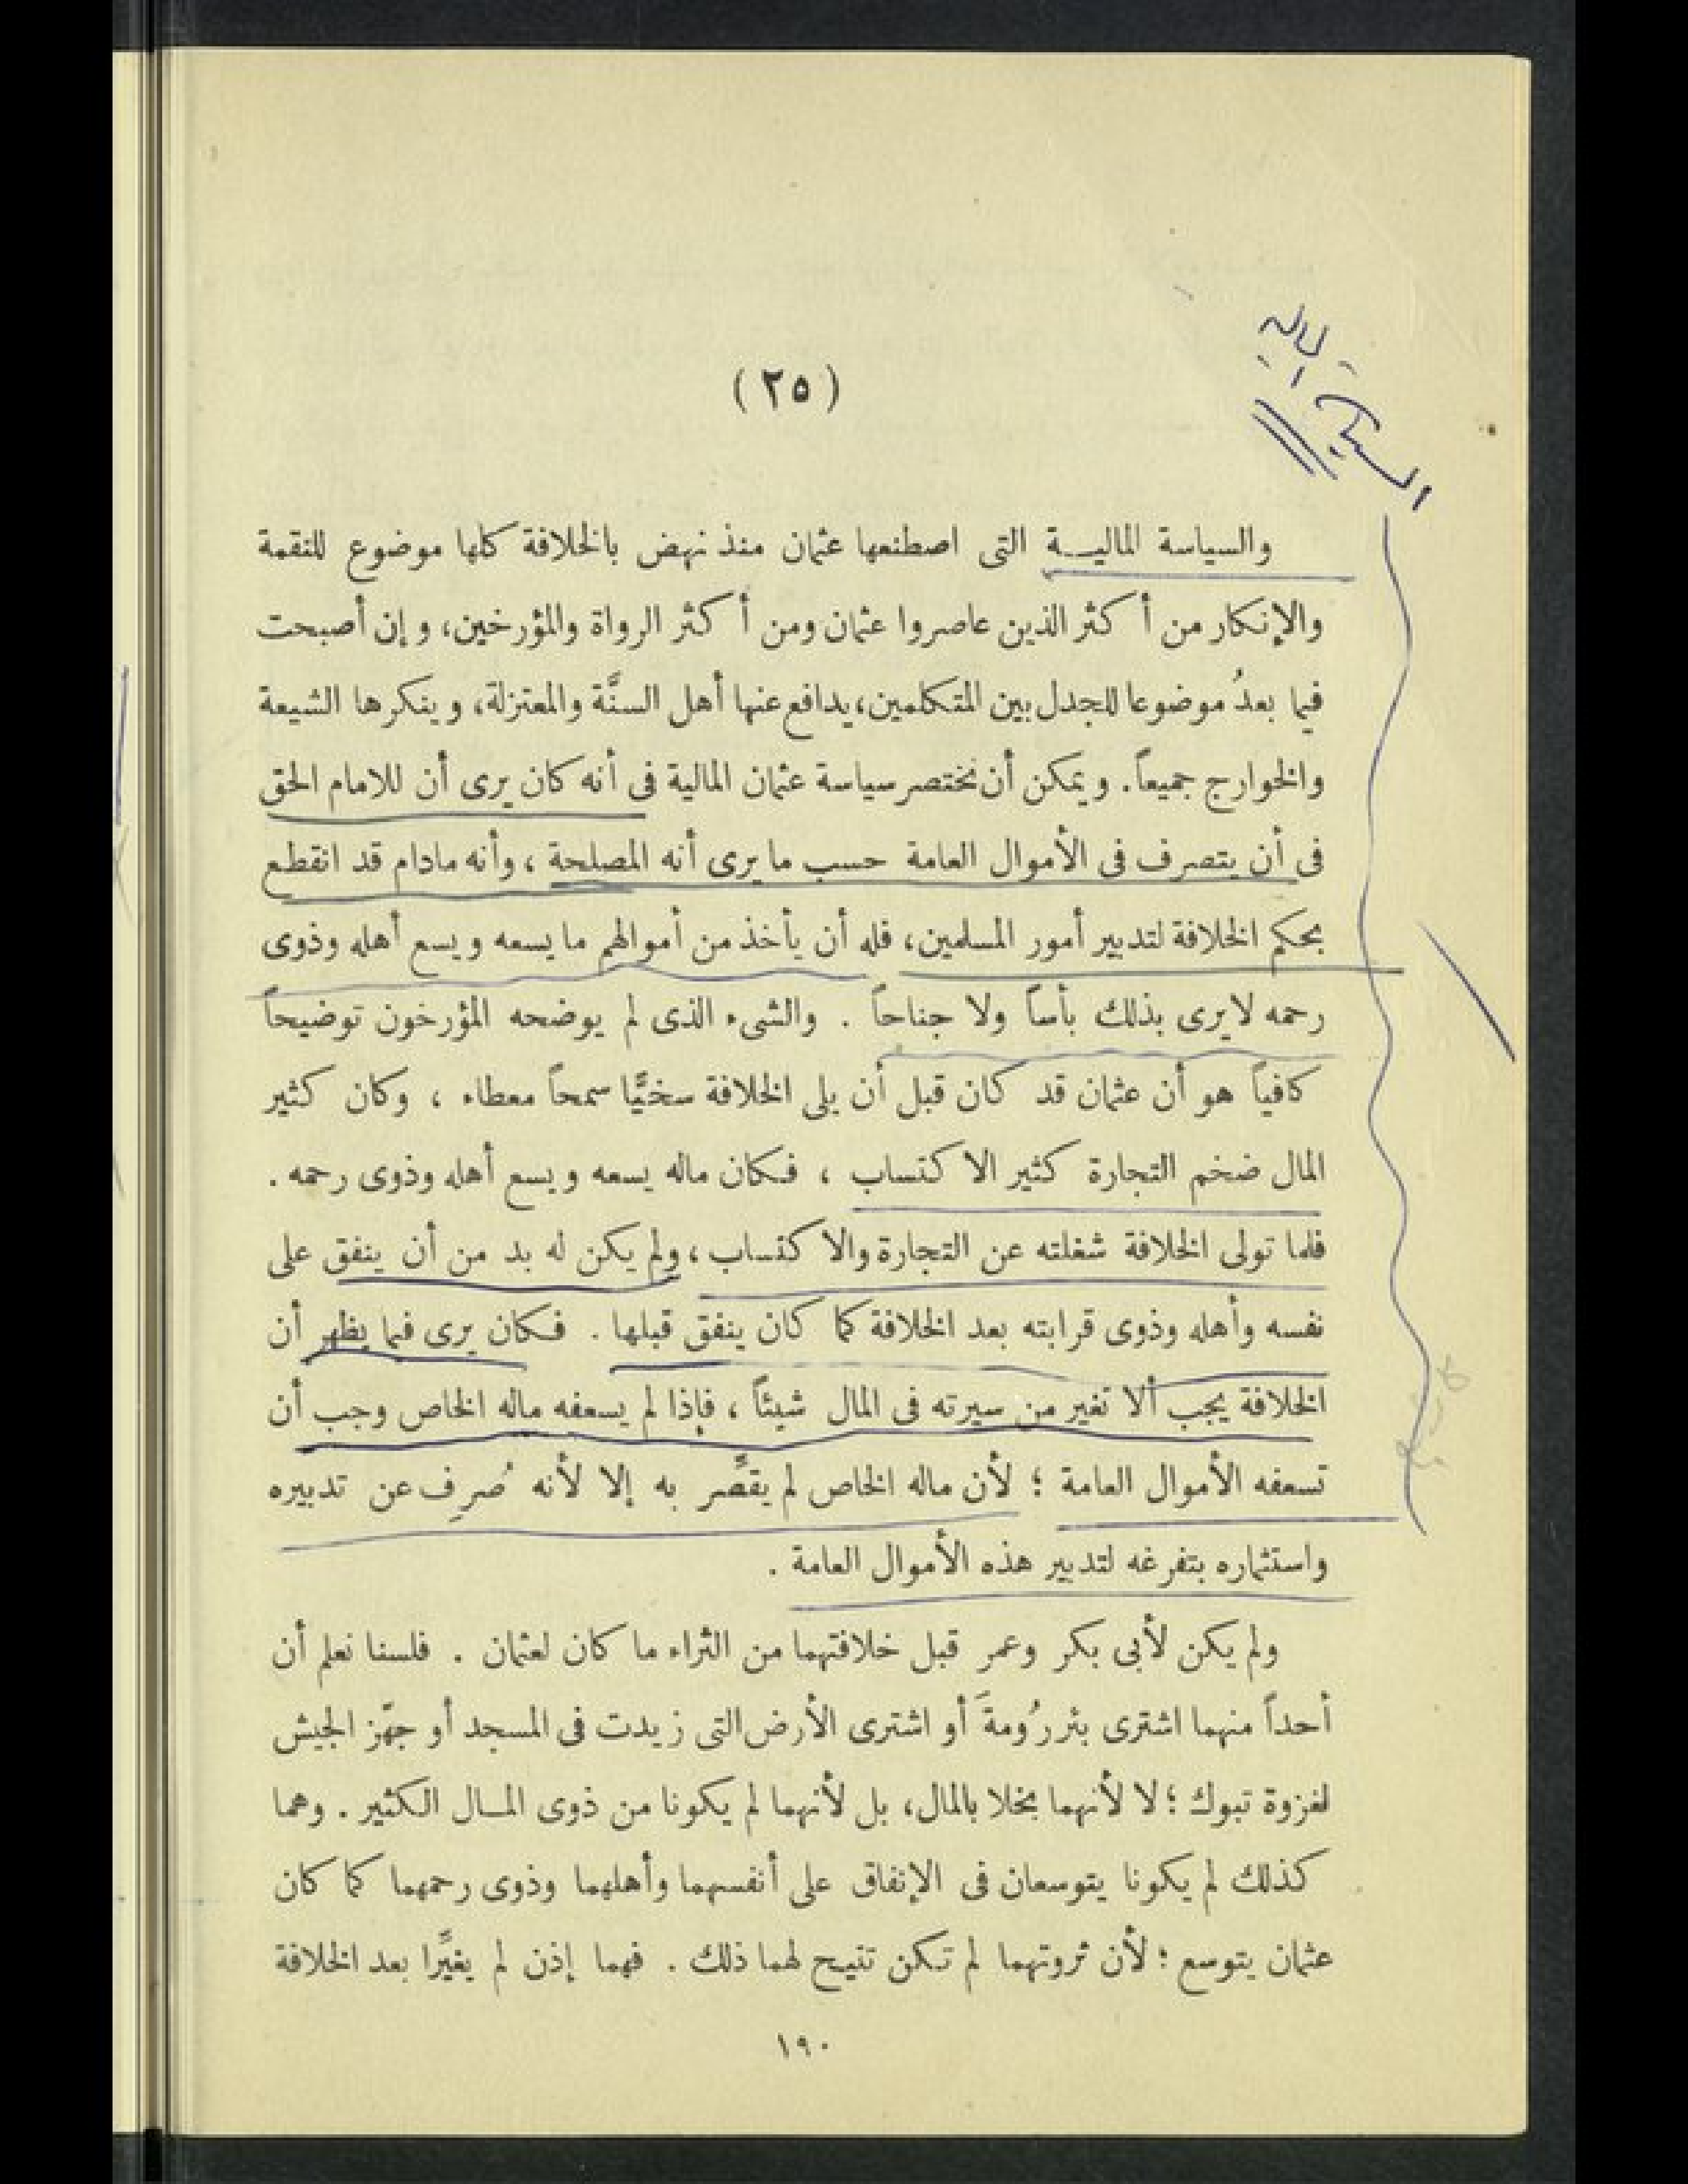 السياسة المالية
(٢٥)
والسياسة المالية التى اصطنعها عثمان منذ نهض بالخلافة كلها موضوع للنقمة
والإنكار من أكثر الذين عاصروا عثمان ومن أكثر الرواة والمؤرخين، وإن أصبحت
فيما بعدُ موضوعا للجدل بين المتكلمين، يدافع عنها أهل السنَّة والمعتزلة، وينكرها الشيعة
والخوارج جميعاً. ويمكن أن نختصر سياسة عثمان المالية فى أنه كان يرى أن للامام الحق
فى أن يتصرف فى الأموال العامة حسب ما يرى أنه المصلحة، وأنه مادام قد انقطع
بحكم الخلافة لتدبير أمور المسلمين، فله أن يأخذ من أموالهم ما يسعه ويسع أهله وذوى
رحمه لايرى بذلك بأساً ولا جناحاً. والشىء الذى لم يوضحه المؤرخون توضيحاً
كافياً هو أن عثمان قد كان قبل أن يلى الخلافة سخيًّا سمحاً معطاء، وكان كثير
المال ضخم التجارة كثير الاكتساب، فكان ماله يسعه ويسع أهله وذوى رحمه.
فلما تولى الخلافة شغلته عن التجارة والاكتساب، ولم يكن له بد من أن ينفق على
نفسه وأهله وذوى قرابته بعد الخلافة كما كان ينفق قبلها. فكان يرى فيما يظهر أن
الخلافة يجب ألا تغير من سيرته فى المال شيئاً، فإذا لم يسعفه ماله الخاص وجب أن
تسعفه الأموال العامة؛ لأن ماله الخاص لم يقصِّر به إلا لأنه صُرِف عن تدبيره
واستثماره بتفرغه لتدبير هذه الأموال العامة.
ولم يكن لأبى بكر وعمر قبل خلافتهما من الثراء ما كان لعثمان. فلسنا نعلم أن
أحداً منهما اشترى بئر رُومةَ أو اشترى الأرض التى زيدت فى المسجد أو جهّز الجيش
لغزوة تبوك؛ لا لأنهما بخلا بالمال، بل لأنهما لم يكونا من ذوى المال الكثير. وهما
كذلك لم يكونا يتوسعان فى الإنفاق على أنفسهما وأهلهما وذوى رحمهما كما كان
عثمان يتوسع؛ لأن ثروتهما لم تكن تتيح لهما ذلك. فهما إذن لم يغيِّرا بعد الخلافة
١٩٠